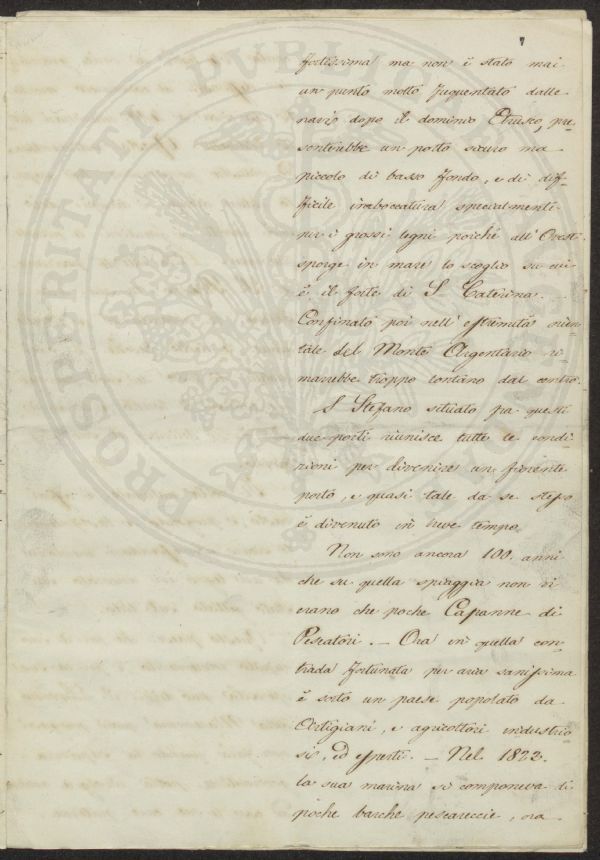 7
fortissima ma non è stato mai
un punto molto frequentato dalle
navi dopo il dominio Etrusco, pre-
senterebbe un porto sicuro ma
piccolo di basso fondo, e di dif-
ficile imboccatura specialmente
per i grossi legni poichè all' Ovest
sporge in mare lo scoglio su cui
è il forte di S. Caterina. _
Confinato poi nell' estremità orien-
tale del Monte Argentario ri-
marrebbe troppo lontano dal centro.
S. Stefano situato fra questi
due porti riunisce tutte le condi-
zioni per divenire un fiorente
porto, e quasi tale da se stesso
è divenuto in breve tempo
Non sono ancora 100. anni
che su quella spiaggia non vi
erano che poche Capanne di
Pescatori. _ Ora in quella con-
trada fortunata per aria sanissima
è sorto un paese popolato da
Artigiani, e agricoltori industrio-
si, ed esperti. _ Nel 1822.
la sua marina si componeva di
poche barche pescareccie, ora
PROSPERITATI PUBLICAE